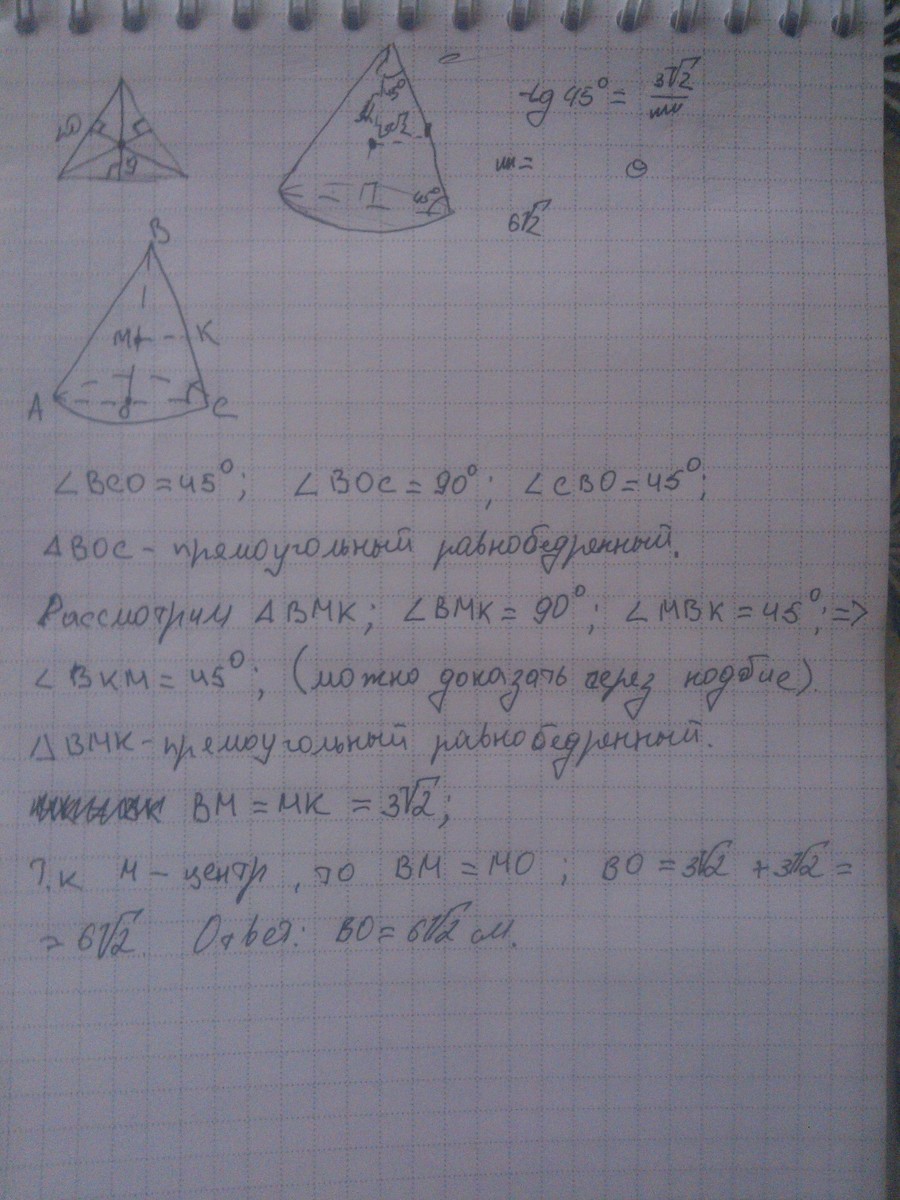 45°
3√2
45°
tg 45° = 3√2
B
6√2
M K
A O C
∠BCO = 45°; ∠BOC = 90°; ∠CBO = 45°;
ΔBOC - прямоугольный равнобедренный.
Рассмотрим ΔBMK; ∠BMK = 90°; ∠MBK = 45°; =>
∠BKM = 45°; (можно доказать через подбие).
ΔBMK - прямоугольный равнобедренный.
BM = MK = 3√2;
Т.к M - центр, то BM = MO; BO = 3√2 + 3√2 =
= 6√2. Ответ: BO = 6√2 см.